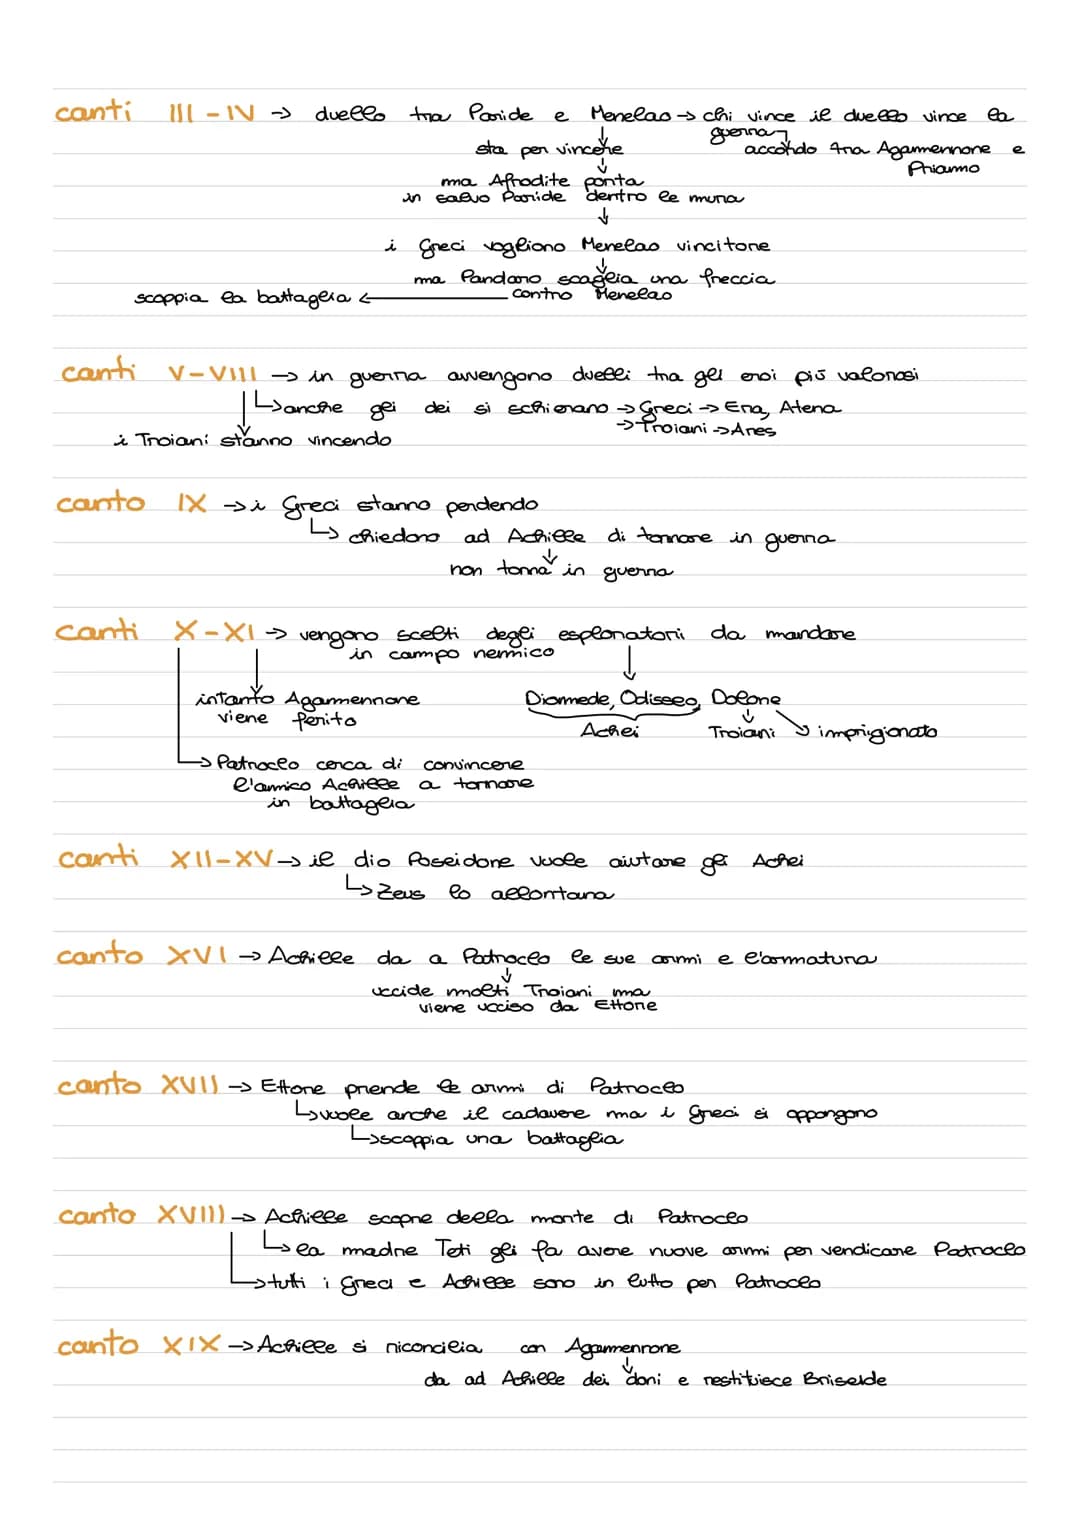 canti III - IV → duello tra Paride e Menelao → chi vince il duello vince la
guerra
sta per vincere accordo tra Agamennone e
Priamo
ma Afrodite porta
in salvo Paride dentro le mura
i Greci vogliono Menelao vincitore
ma Pandaro scaglia una freccia
scoppia la battaglia ← contro Menelao
canti V - VIII → in guerra avvengono duelli tra gli eroi più valorosi
↳ anche gli dei si schierano → Greci → Era, Atena
→ Troiani → Ares
i Troiani stanno vincendo
canto IX → i Greci stanno perdendo
↳ chiedono ad Achille di tornare in guerra
non torna in guerra
canti X - XI → vengono scelti degli esploratorii da mandare
in campo nemico
intanto Agamennone Diomede, Odisseo, Dolone
viene ferito
Achei Troiani imprigionato
↳ Patroclo cerca di convincere
l'amico Achille a tornare
in battaglia
canti XII - XV → il dio Poseidone vuole aiutare gli Achei
↳ Zeus lo allontana
canto XVI → Achille da a Patroclo le sue armi e l'armatura
uccide molti Troiani ma
viene ucciso da Ettore
canto XVII → Ettore prende le armi di Patroclo
↳ vuole anche il cadavere ma i Greci si oppongono
↳ scoppia una battaglia
canto XVIII → Achille scopre della morte di Patroclo
↳ la madre Teti gli fa avere nuove armi per vendicare Patroclo
↳ tutti i Greci e Achille sono in lutto per Patroclo
canto XIX → Achille si riconcilia con Agamennone
da ad Achille dei doni e restituisce Briseide